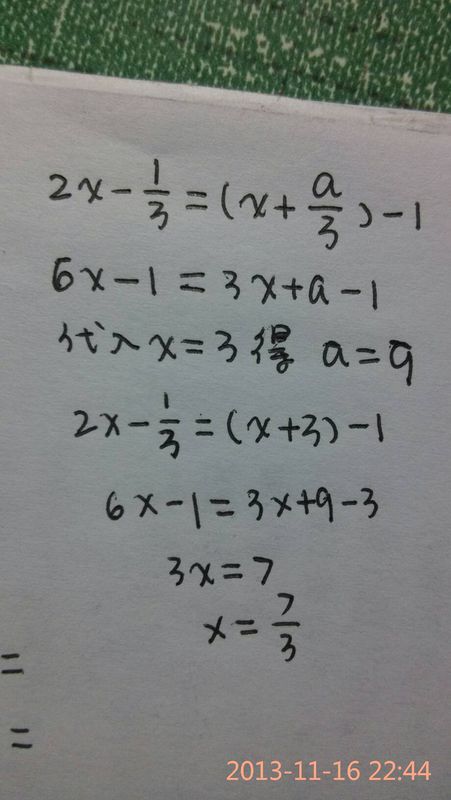 2x-1/3=(x+a/3)-1
6x-1=3x+a-1
代入x=3得 a=9
2x-1/3=(x+3)-1
6x-1=3x+9-3
3x=7
x=7/3
=
=
2013-11-16 22:44